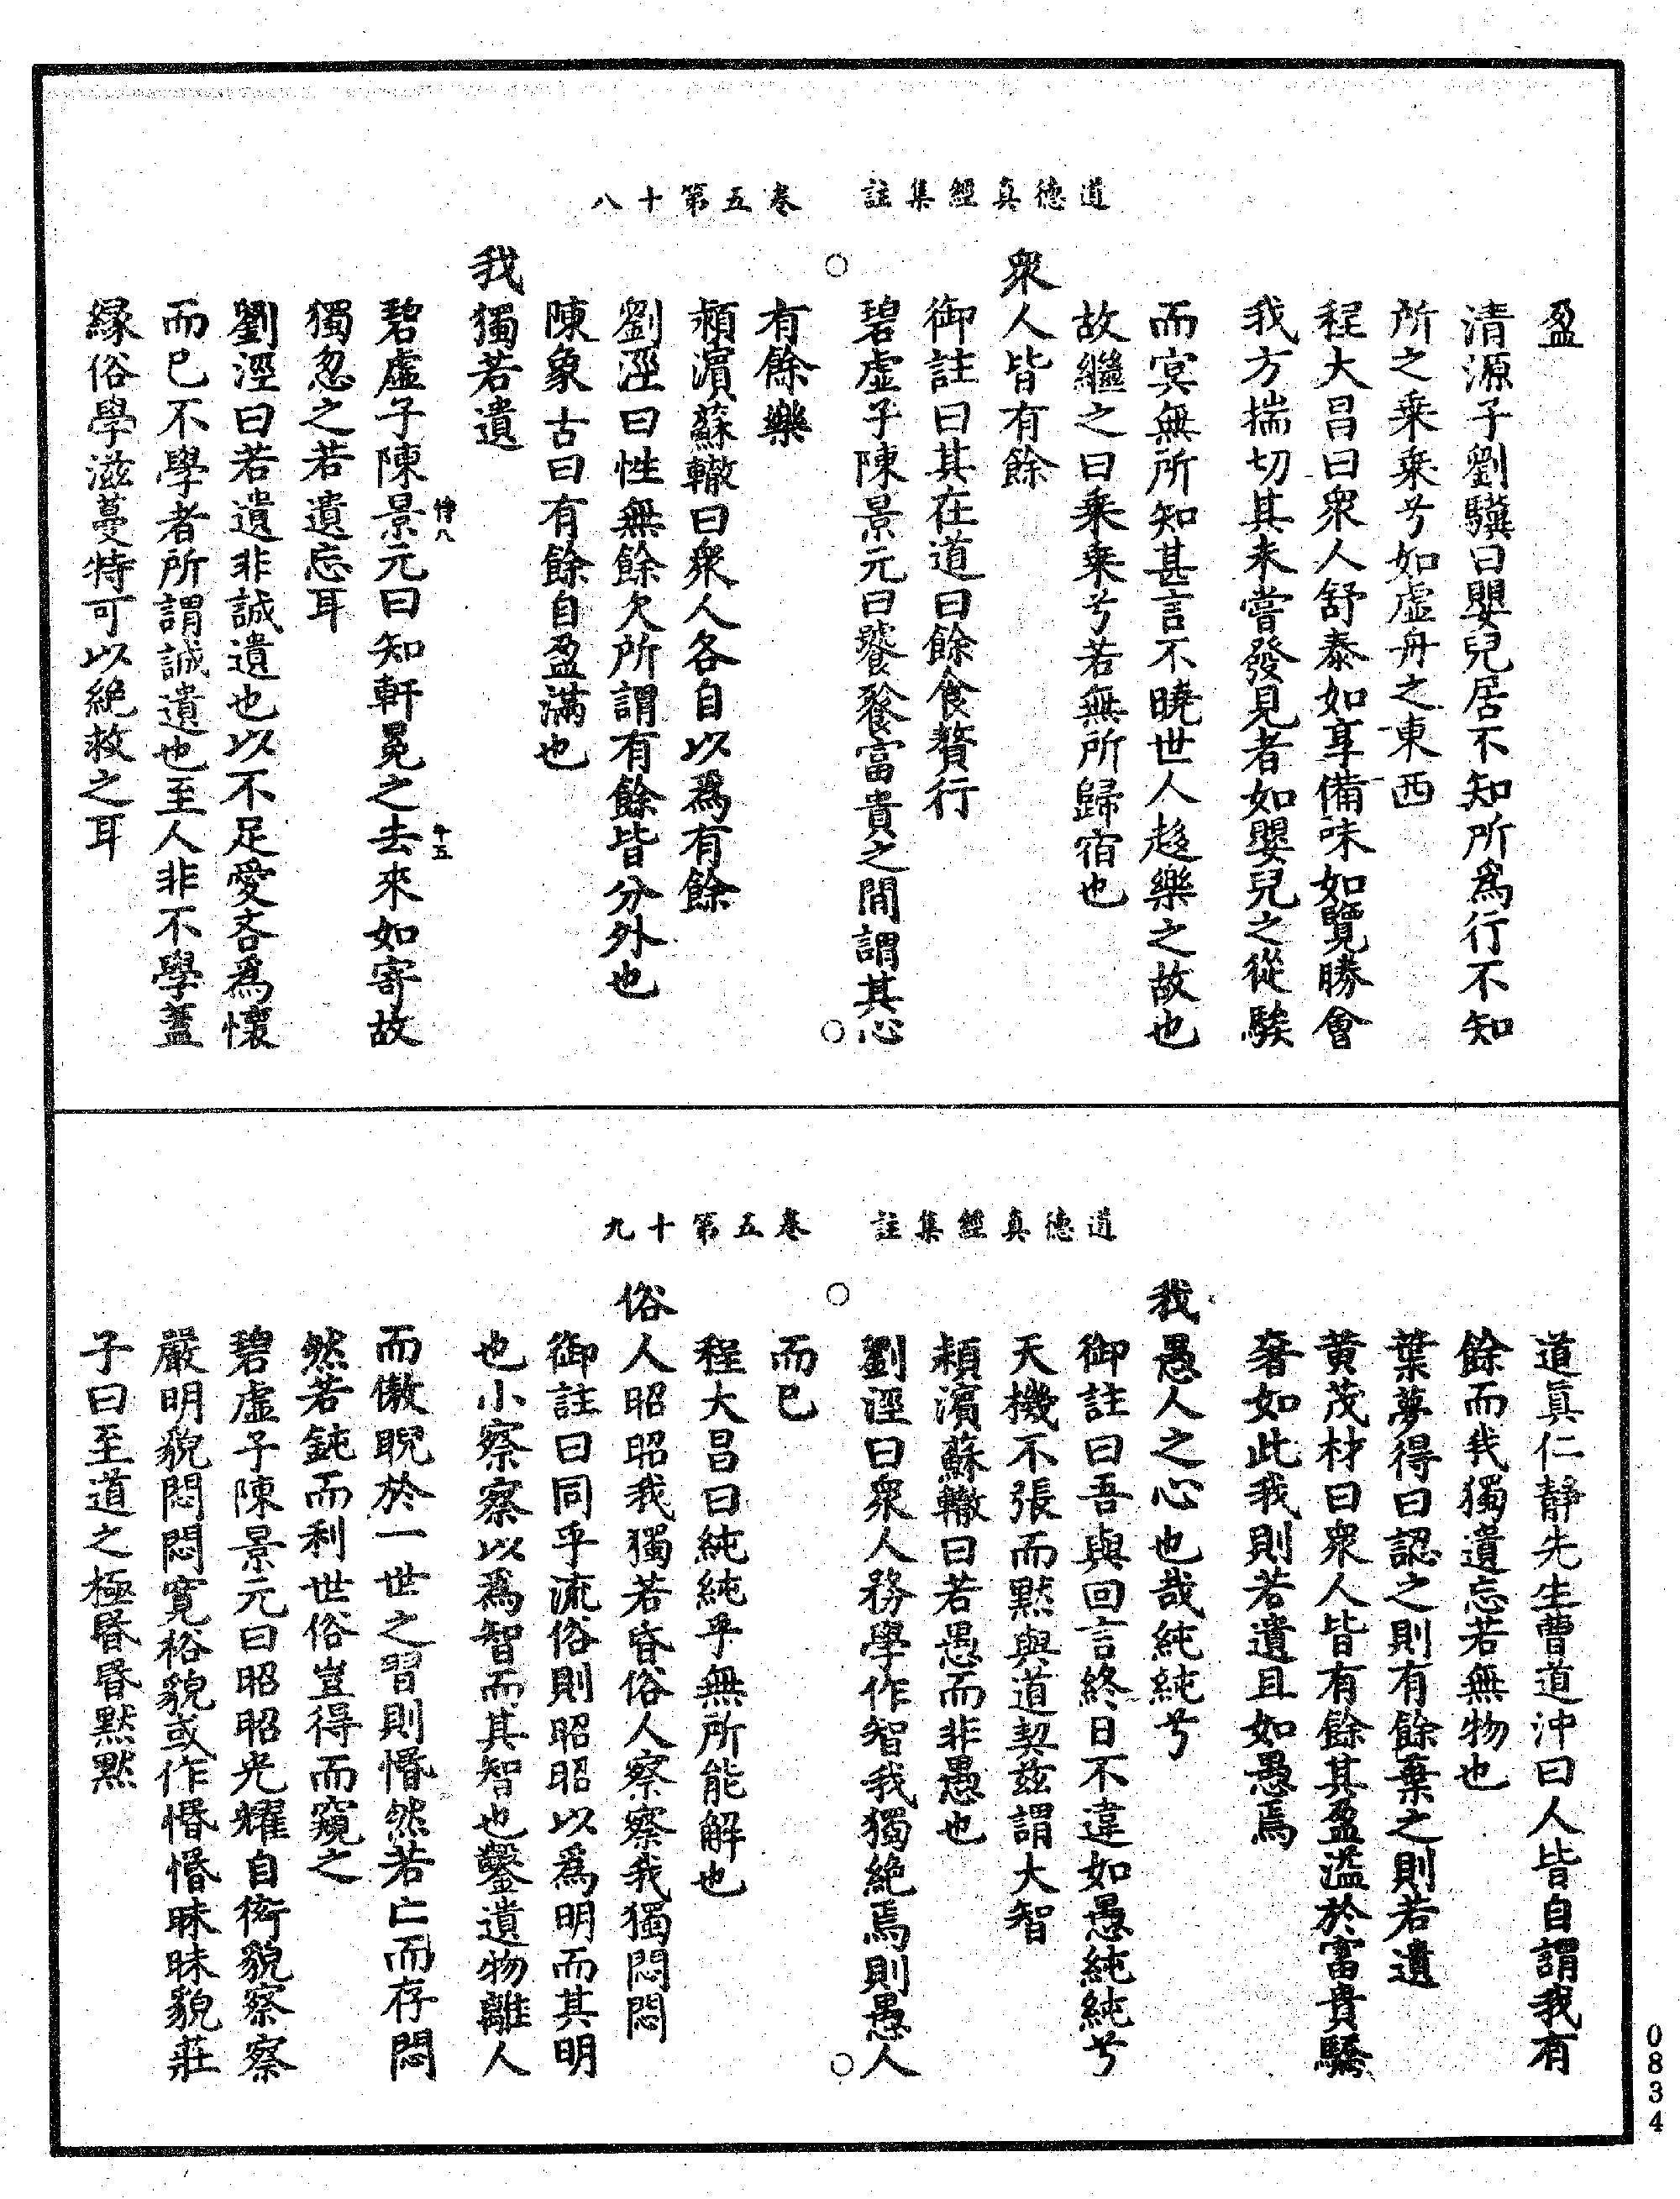 道德真經集註　卷五第十八
盈
清源子劉驥曰嬰兒居不知所爲行不知
所之乘乘兮如虛舟之東西
程大昌曰衆人舒泰如享備味如覽勝會
我方揣切其未嘗發見者如嬰兒之從騃
而寘無所知甚言不曉世人趍樂之故也
故繼之曰乘乘兮若無所歸宿也
衆人皆有餘
御註曰其在道曰餘食贅行
碧虛子陳景元曰饕餮富貴之間謂其心
有餘樂
頴濱蘇轍曰衆人各自以爲有餘
劉涇曰性無餘欠所謂有餘皆分外也
陳象古曰有餘自盈滿也
我獨若遺
碧虛子陳景元曰知軒冕之去來如寄故
悖八　十五
獨忽之若遺忘耳
劉涇曰若遺非誠遺也以不足愛吝爲懷
而已不學者所謂誠遺也至人非不學蓋
緣俗學滋蔓特可以絕救之耳
道德真經集註　卷五第十九
道真仁靜先生曹道沖曰人皆自謂我有
餘而我獨遺忘若無物也
葉夢得曰認之則有餘棄之則若遺
黃茂材曰衆人皆有餘其盈溢於富貴驕
奢如此我則若遺且如愚焉
我愚人之心也哉純純兮
御註曰吾與回言終日不違如愚純純兮
天機不張而默與道契兹謂大智
頴濱蘇轍曰若愚而非愚也
劉涇曰衆人務學作智我獨絕焉則愚人
而已
程大昌曰純純乎無所能解也
俗人昭昭我獨若昏俗人察察我獨悶悶
御註曰同乎流俗則昭昭以爲明而其明
也小察察以爲智而其智也鑿遺物離人
而傲睨於一世之習則惛然若亡而存悶
然若鈍而利世俗豈得而窺之
碧虛子陳景元曰昭昭光耀自衒貌察察
嚴明貌悶悶寬裕貌或作惛惛昧昧貌莊
子曰至道之極昏昏默默
0834